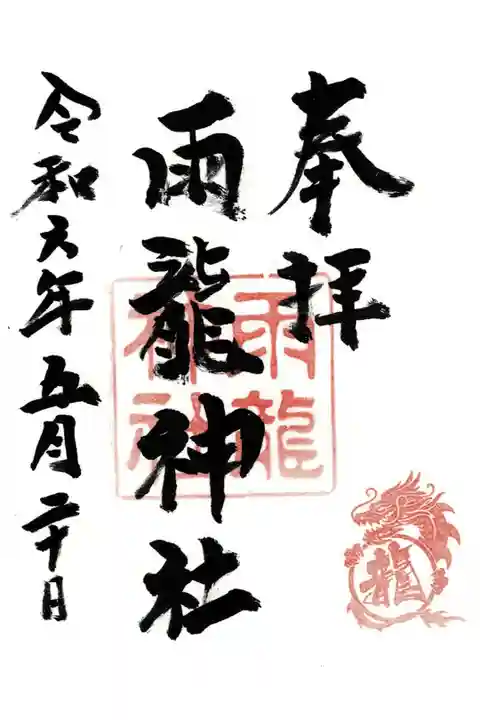 奉拝
雨龍神社
雨龍神社
龍
令和六年五月二十日